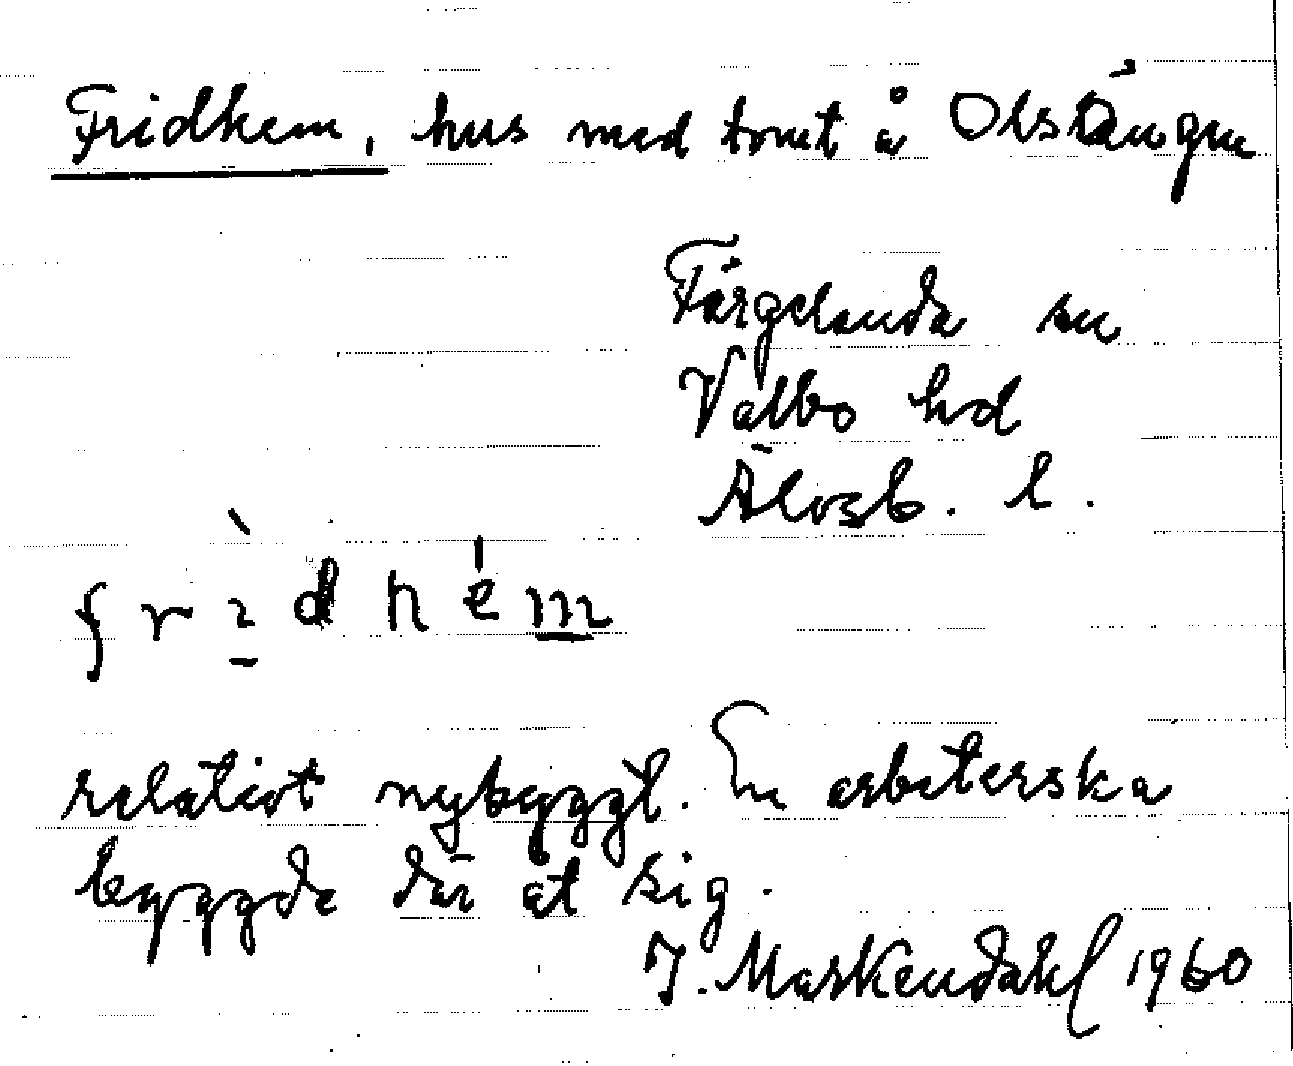 Fridhem, hus med tomt å Olsängen
Färgelanda sn
Valbo hd
Älvsb. l.
relativt nybyggt. En arbeterska
byggde där åt sig.
J. Markendahl 1960